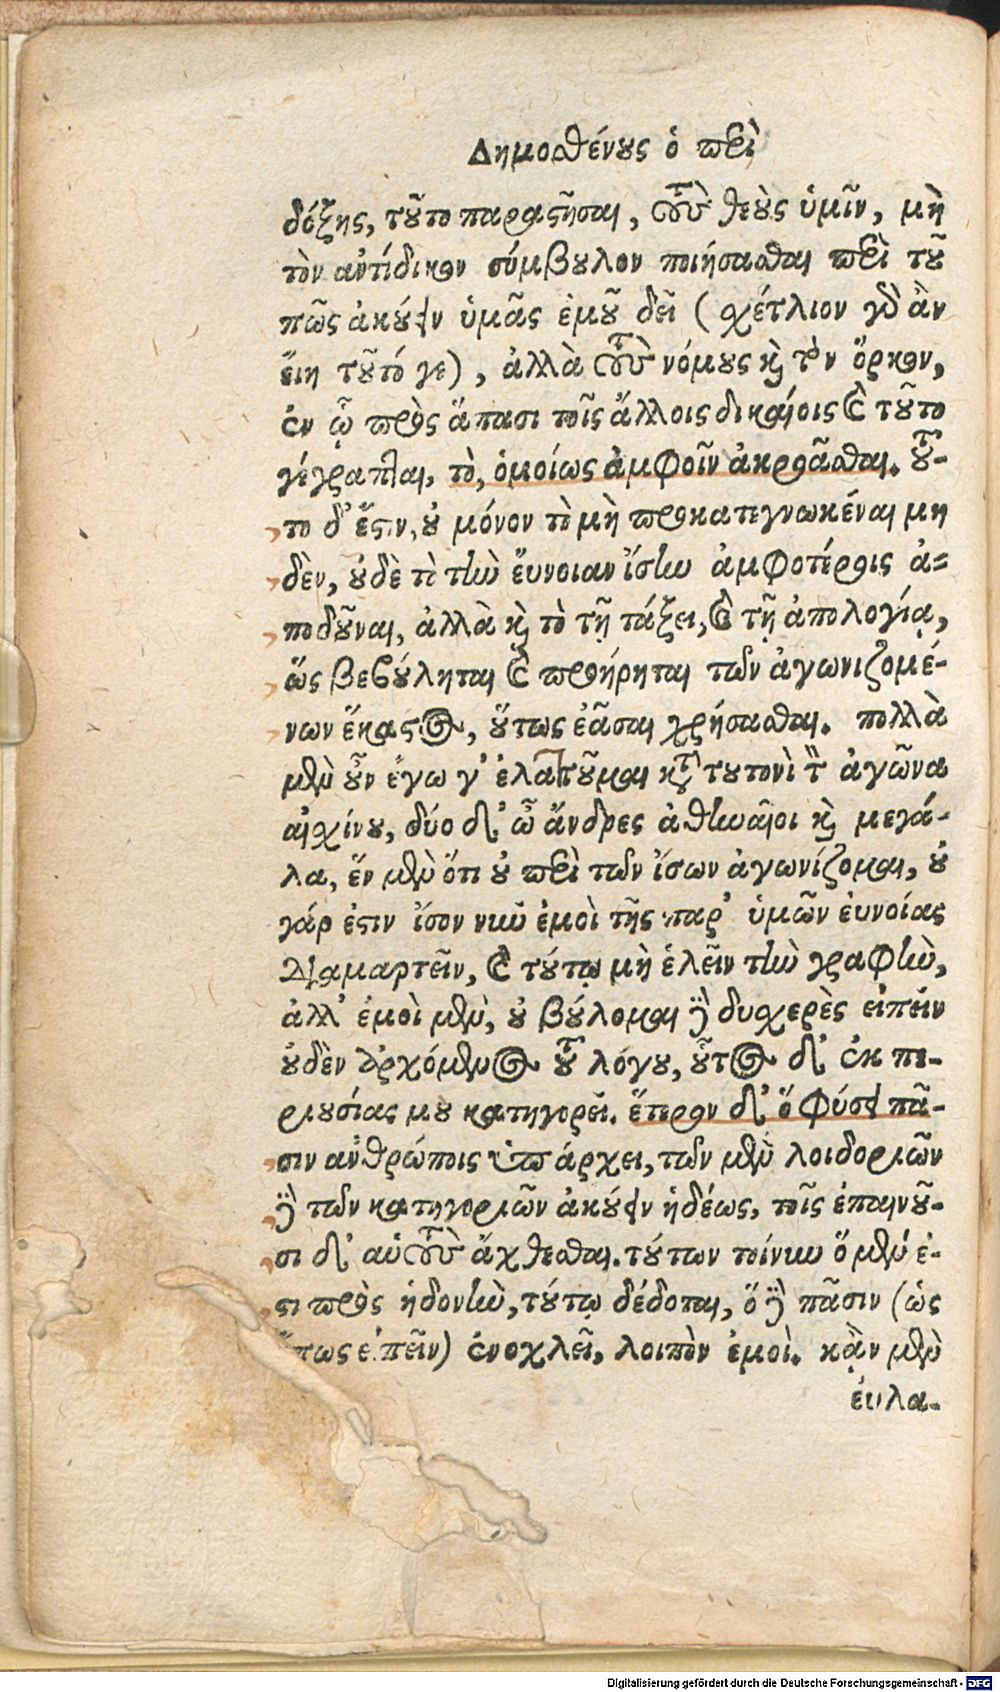 Δημοσθένους ὁ περὶ
δόξης, τοῦτο παραστῆσαι, τοὺς θεοὺς ὑμῖν, μὴ
τὸν ἀντίδικον σύμβουλον ποιήσασθαι περὶ τοῦ
πῶς ἀκούειν ὑμᾶς ἐμοῦ δεῖ (σχέτλιον γὰρ ἂν
ἔιη τοῦτό γε), ἀλλὰ τοὺς νόμους καὶ τὸν ὅρκον,
ἐν ᾧ πρὸς ἅπασι τοῖς ἄλλοις δικαίοις καὶ τοῦτο
γέγραπται, τὸ, ὁμοίως ἀμφοῖν ἀκροᾶσθαι. τοῦ-
το δ' ἔστιν, οὐ μόνον τὸ μὴ προκατεγνωκέναι μη
δὲν, οὐδὲ τὸ τὴν ἔυνοιαν ἴσην ἀμφοτέροις ἀ-
ποδοῦναι, ἀλλὰ καὶ τὸ τῇ τάξει, καὶ τῇ ἀπολογίᾳ,
ὥς βεβούληται καὶ προῄρηται τῶν ἀγωνιζομέ-
νων ἕκαστος, οὕτως ἐᾶσαι χρήσασθαι. πολλὰ
μὲν οὖν ἔγωγ' ἐλαττοῦμαι κατὰ τουτονὶ τὸν ἀγῶνα
αἰσχίνου, δύο δ' ὦ ἄνδρες ἀθηναῖοι καὶ μεγά-
λα, ἓν μὲν ὅτι οὐ περὶ τῶν ἴσων ἀγωνίζομαι, οὐ
γάρ ἐστιν ἴσον νῦν ἐμοὶ τῆς παρ' ὑμῶν ἐυνοίας
διαμαρτεῖν, καὶ τούτῳ μὴ ἑλεῖν τὴν γραφὴν,
ἀλλ' ἐμοὶ μὲν, οὐ βούλομαι δὲ δυσχερὲς εἰπεῖν
οὐδὲν ἀρχόμενος τοῦ λόγου, οὗτος δ' ἐκ πε-
ριουσίας μου κατηγορεῖ. ἕτερον δ' ὃ φύσει πᾶ-
σιν ἀνθρώποις ὑπάρχει, τῶν μὲν λοιδοριῶν
καὶ τῶν κατηγοριῶν ἀκούειν ἡδέως, τοῖς ἐπαινοῦ-
σι δ' αὑτοὺς ἄχθεσθαι. τούτων τοίνυν ὃ μέν ἐ-
στι πρὸς ἡδονὴν, τούτῳ δέδοται, ὃ δὲ πᾶσιν (ὡς
ἔπως εἰπεῖν) ἐνοχλεῖ, λοιπὸν ἐμοὶ. κἂν μὲν
ἐυλα-
Digitalisierung gefördert durch die Deutsche Forschungsgemeinschaft - DFG